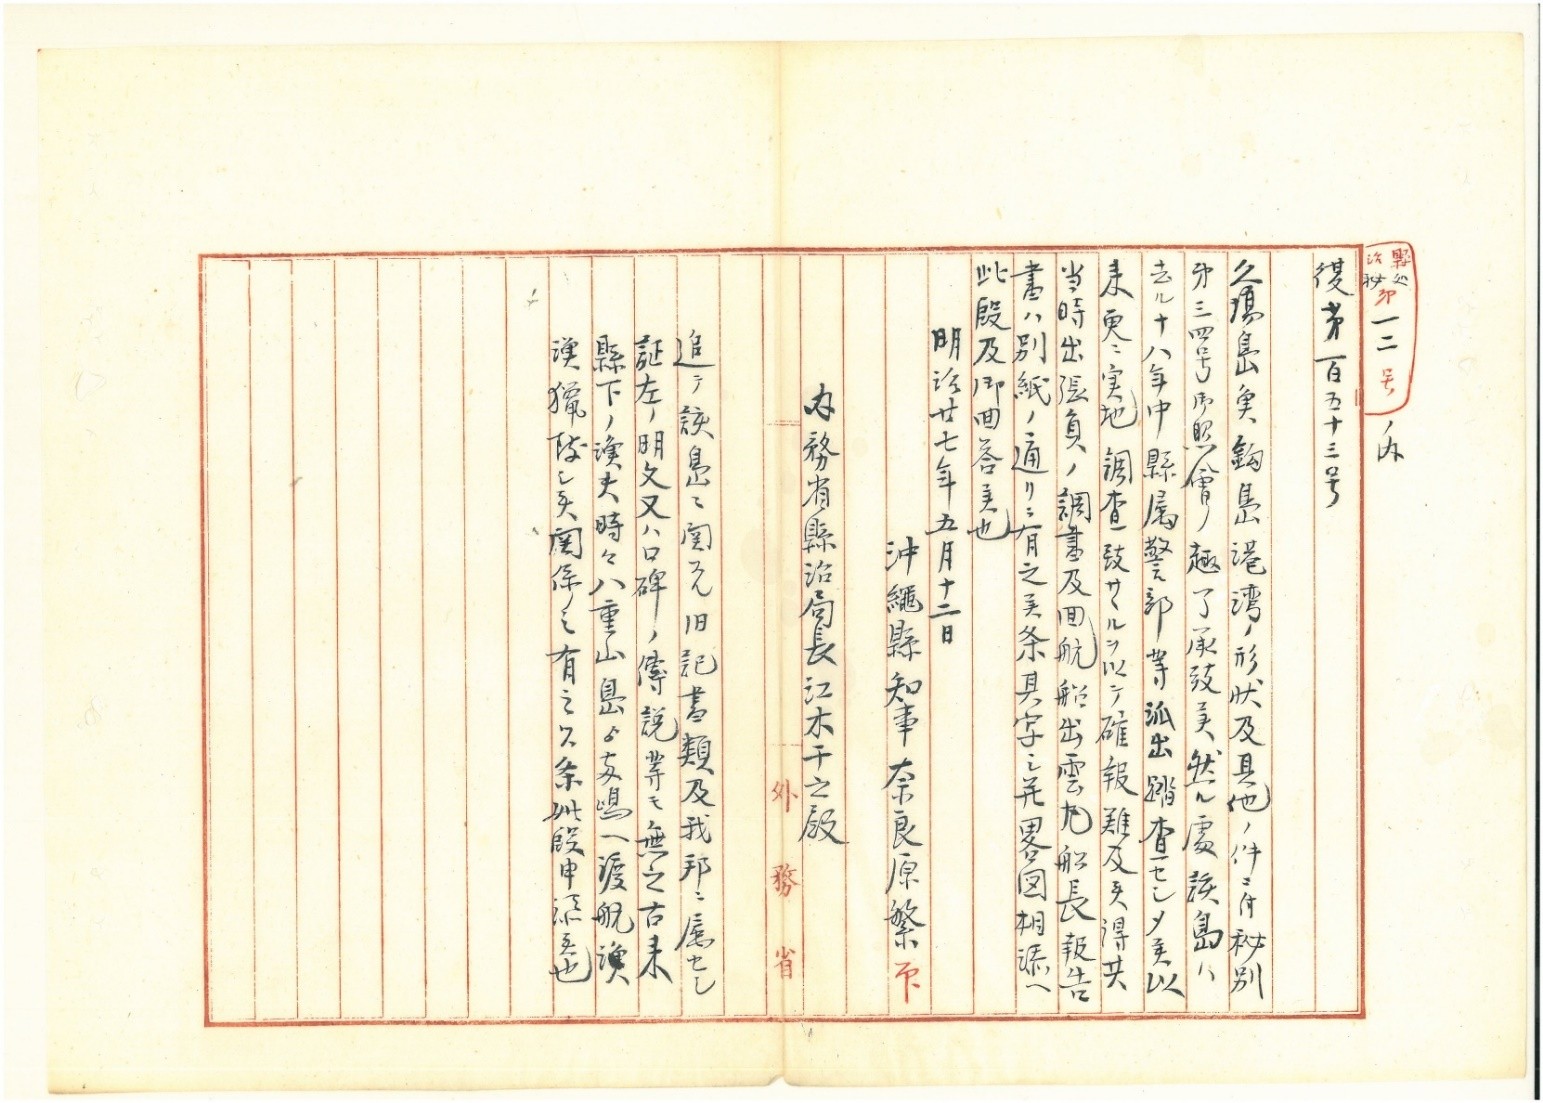 縣治
秘
第一二号ノ内
復第百五十三号
久場島魚釣島港湾ノ形状及其他ノ件ニ付秘別
第三四号御照會ノ趣了承致候然ル處該島ハ
去ル十八年中縣属警部等派出踏査セシメ候以
来更ニ実地調査致サヽルヲ以テ確報難及候得共
当時出張員ノ調書及回航船出雲丸船長報告
書ハ別紙ノ通リニ有之候条其写ニ并畧図相添ヘ
此段及御回答候也
明治廿七年五月十二日
沖繩縣知事奈良原繁 印
内務省縣治局長江木千之殿
追テ該島ニ関スル旧記書類及我邦ニ属セシ
証左ノ明文又ハ口碑ノ傳説等モ無之古来
縣下ノ漁夫時々八重山島ゟ両嶋ヘ渡航漁
漁獵致シ候関係ノミ有之候条此段申添候也
外務省